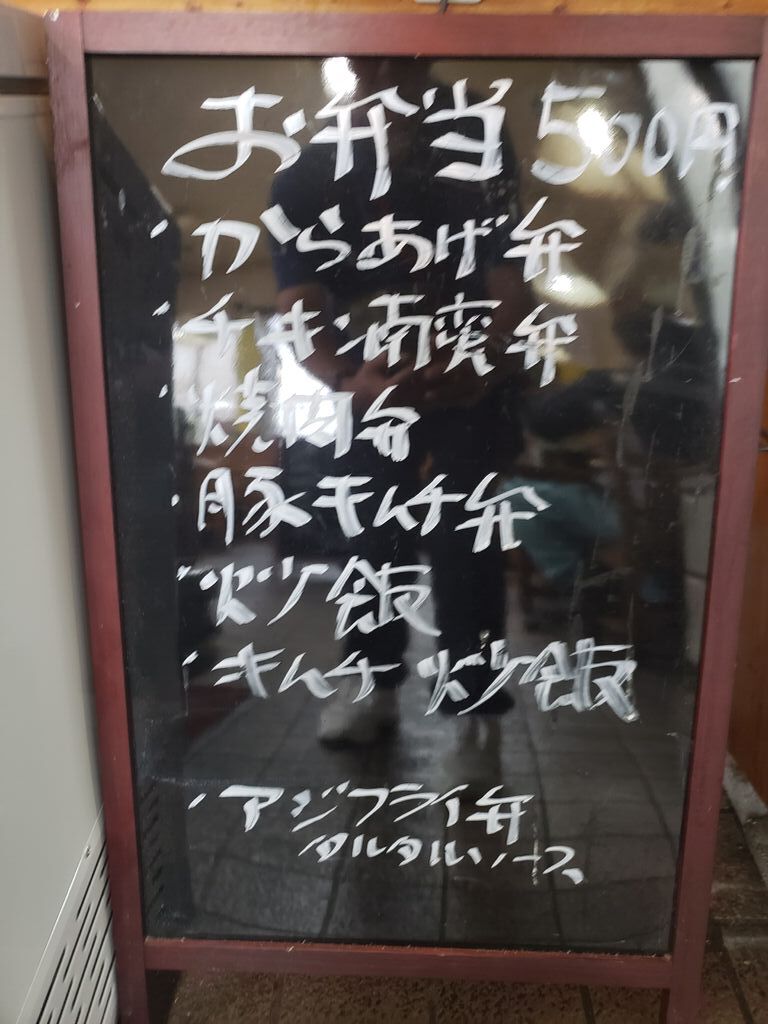 お弁当 500円
・からあげ弁
・チキン南蛮弁
・焼肉弁
・豚キムチ弁
・炒飯
・キムチ炒飯
・アジフライ弁
タルタルソース